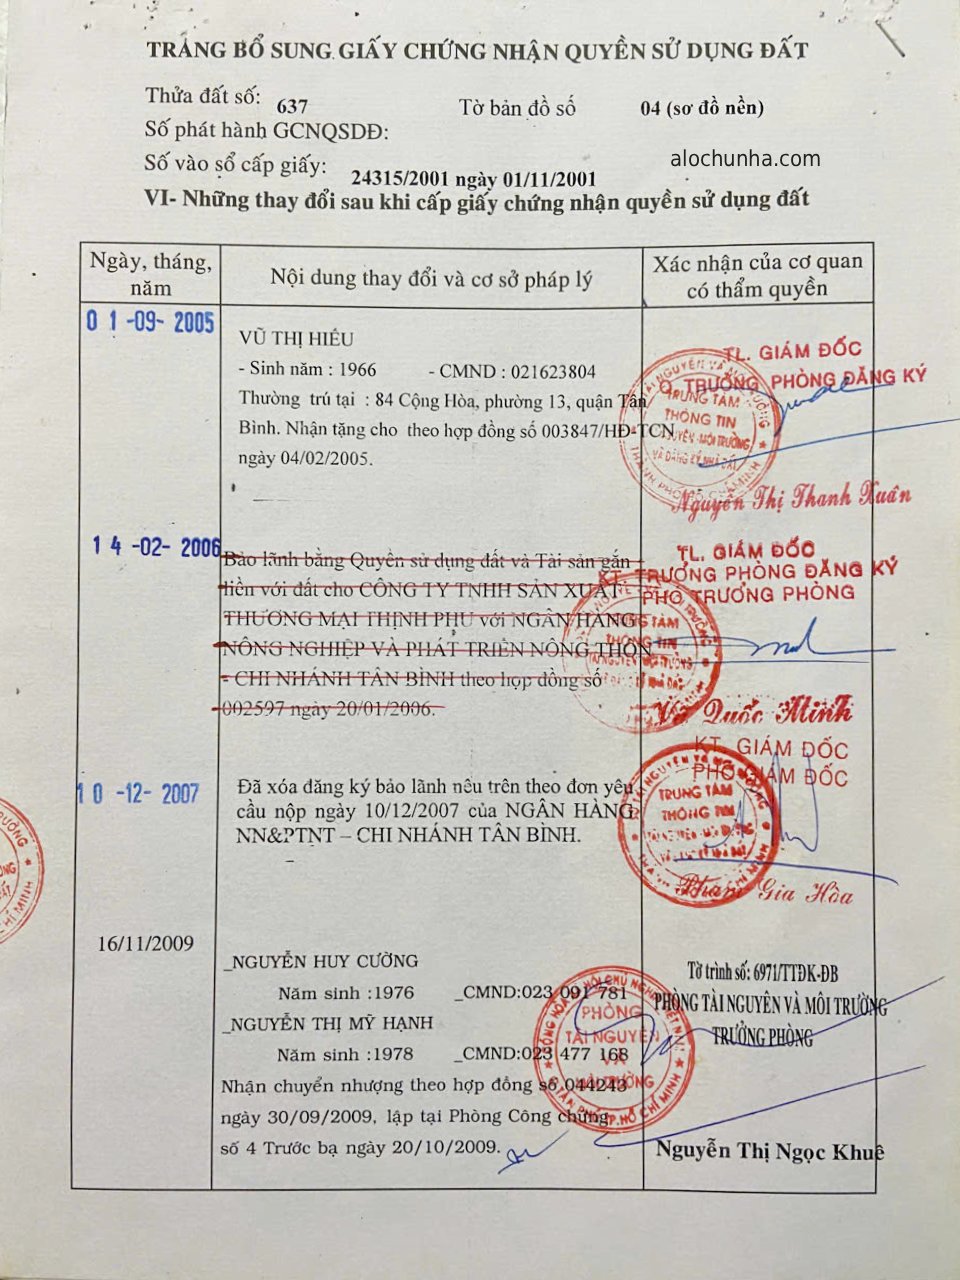 TRANG BỔ SUNG GIẤY CHỨNG NHẬN QUYỀN SỬ DỤNG ĐẤT
Thửa đất số: 637 Tờ bản đồ số 04 (sơ đồ nền)
Số phát hành GCNQSDĐ:
alochunha.com
Số vào sổ cấp giấy: 24315/2001 ngày 01/11/2001
VI- Những thay đổi sau khi cấp giấy chứng nhận quyền sử dụng đất
Ngày, tháng, năm
Nội dung thay đổi và cơ sở pháp lý
Xác nhận của cơ quan có thẩm quyền
01-09-2005
VŨ THỊ HIẾU
- Sinh năm : 1966 - CMND : 021623804
Thường trú tại : 84 Cộng Hòa, phường 13, quận Tân
Bình. Nhận tặng cho theo hợp đồng số 003847/HĐ-TCN
ngày 04/02/2005.
TL. GIÁM ĐỐC
Q. TRƯỞNG PHÒNG ĐĂNG KÝ
TRUNG TÂM
THÔNG TIN
TÀI NGUYÊN - MÔI TRƯỜNG
VÀ ĐĂNG KÝ NHÀ ĐẤT
Nguyễn Thị Thanh Xuân
14-02-2006
Bảo lãnh bằng Quyền sử dụng đất và Tài sản gắn
liền với đất cho CÔNG TY TNHH SẢN XUẤT
THƯƠNG MẠI THỊNH PHÚ với NGÂN HÀNG
NÔNG NGHIỆP VÀ PHÁT TRIỂN NÔNG THÔN
- CHI NHÁNH TÂN BÌNH theo hợp đồng số
002597 ngày 20/01/2006.
TL. GIÁM ĐỐC
KT. TRƯỞNG PHÒNG ĐĂNG KÝ
PHÓ TRƯỞNG PHÒNG
TRUNG TÂM
THÔNG TIN
Quốc Minh
10-12-2007
Đã xóa đăng ký bảo lãnh nêu trên theo đơn yêu
cầu nộp ngày 10/12/2007 của NGÂN HÀNG
NN&PTNT – CHI NHÁNH TÂN BÌNH.
KT. GIÁM ĐỐC
PHÓ GIÁM ĐỐC
TRUNG TÂM
THÔNG TIN
Phạm Gia Hòa
16/11/2009
_NGUYỄN HUY CƯỜNG
Năm sinh :1976 _CMND:023 091 781
_NGUYỄN THỊ MỸ HẠNH
Năm sinh :1978 _CMND:023 477 168
Nhận chuyển nhượng theo hợp đồng số 044243
ngày 30/09/2009, lập tại Phòng Công chứng
số 4 Trước bạ ngày 20/10/2009.
PHÒNG
TÀI NGUYÊN
VÀ
MÔI TRƯỜNG
Tờ trình số: 6971/TTĐK-ĐB
PHÒNG TÀI NGUYÊN VÀ MÔI TRƯỜNG
TRƯỞNG PHÒNG
Nguyễn Thị Ngọc Khuê